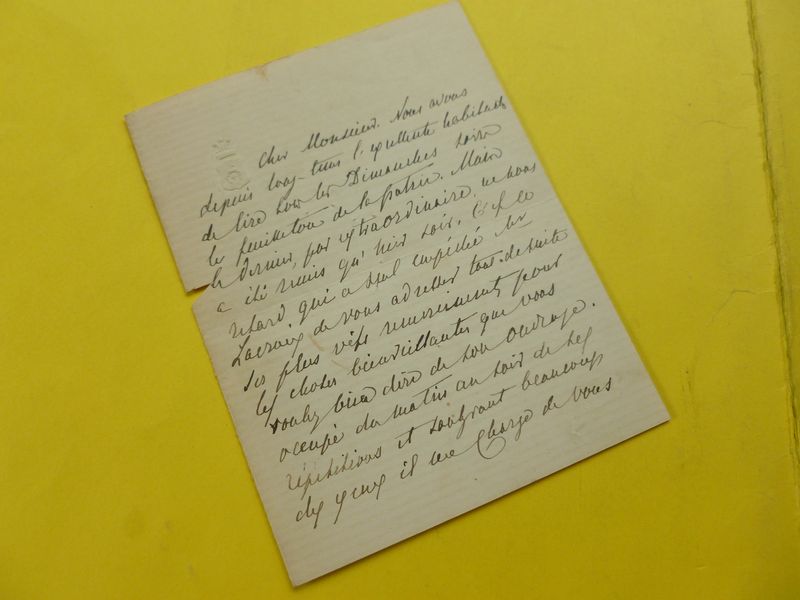 Cher Monsieur. Nous avons
depuis long-tems l'excellente habitude
de lire tous les Dimanches soirs
le feuilleton de la patrie. Mais
le dernier, par extraordinaire, ne nous
a été remis qu'hier soir. C'est ce
retard qui a seul empêché Mr
Lacroix de vous adresser tout-de-suite
ses plus vifs remerciments pour
les choses bienveillantes que vous
voulez bien dire de son ouvrage.
occupé du matin au soir de ses
répétitions et souffrant beaucoup
des yeux il me charge de vous